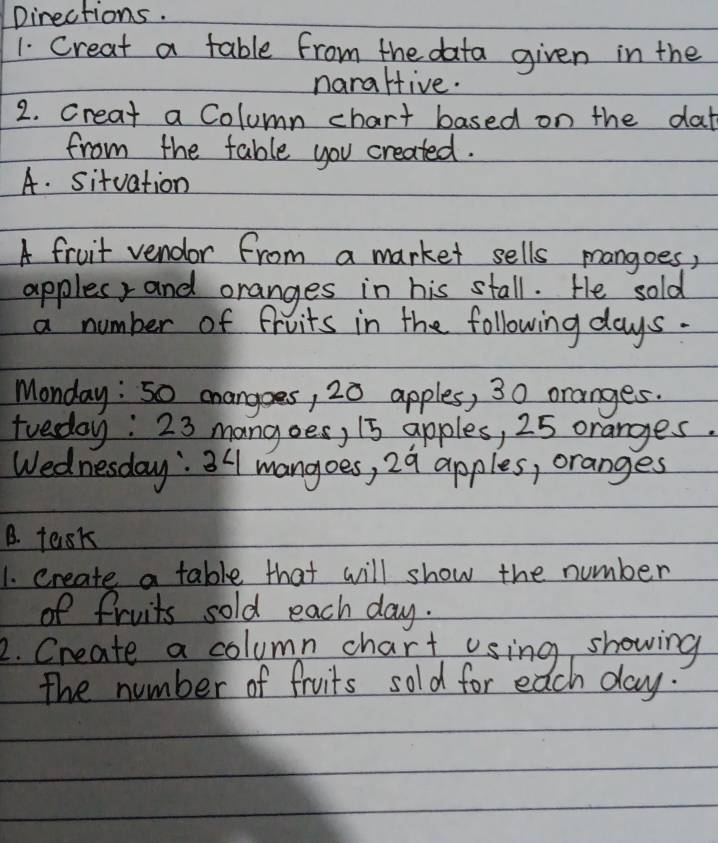 Directions.
1. Creat a table from the data given in the
narattive.
2. Creat a Column chart based on the dat
from the table you created.
A. situation
A fruit vendor from a market sells mangoes,
apples, and oranges in his stall. He sold
a number of fruits in the following days.
Monday: 50 mangoes, 20 apples, 30 oranges.
tuesday: 23 mangoes, 15 apples, 25 oranges.
Wednesday: 34 mangoes, 29 apples, oranges
B. task
1. Create a table that will show the number
of fruits sold each day.
2. Create a column chart using showing
the number of fruits sold for each day.